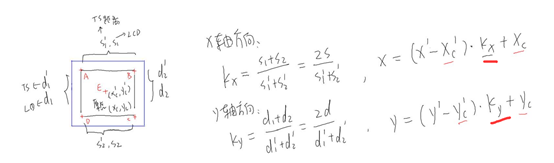 TS触摸
s₁', s₁ → LCD
TS ← d₁'
LCD ← d₁
A
B
E
(x_c', y_c')
(x_c, y_c)
d₂'
d₂
D
C
s₂', s₂
X轴方向:
k_x = (s₁+s₂)/(s₁'+s₂') = 2s/(s₁'+s₂') , x = (x' - x_c')·k_x + x_c
y轴方向:
k_y = (d₁+d₂)/(d₁'+d₂') = 2d/(d₁'+d₂') , y = (y' - y_c')·k_y + y_c